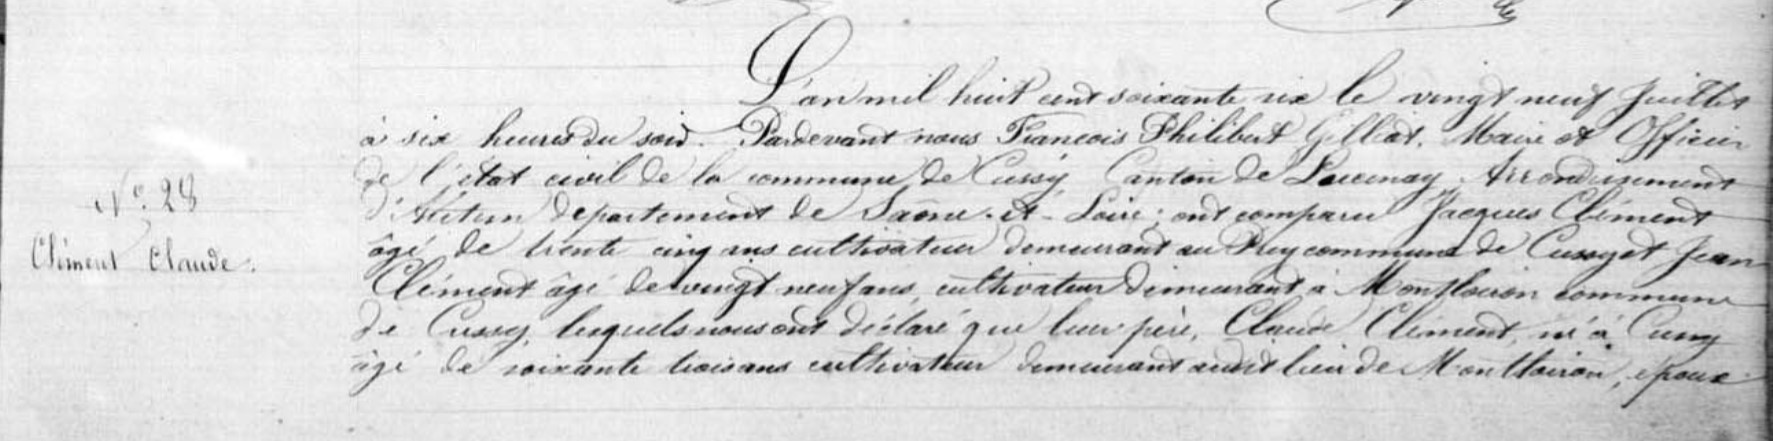 L'an mil huit cent soixante six le vingt neuf Juillet
à six heures du soir. Pardevant nous François Philibert Maire et Officier
de l'état civil de la commune de Cussy, Canton de Lucenay Arrondissement
d'Autun département de Saône-et-Loire; ont comparu Jacques Clément
âgé de trente cinq ans cultivateur demeurant au commune de Cussy et Jean
N° 28
Clément Claude.
Clément âgé de vingt neuf ans, cultivateur demeurant à commune
de Cussy, lesquels nous ont déclaré que leur père, Claude Clément, né à Cussy
âgé de soixante trois ans cultivateur demeurant audit lieu de , époux